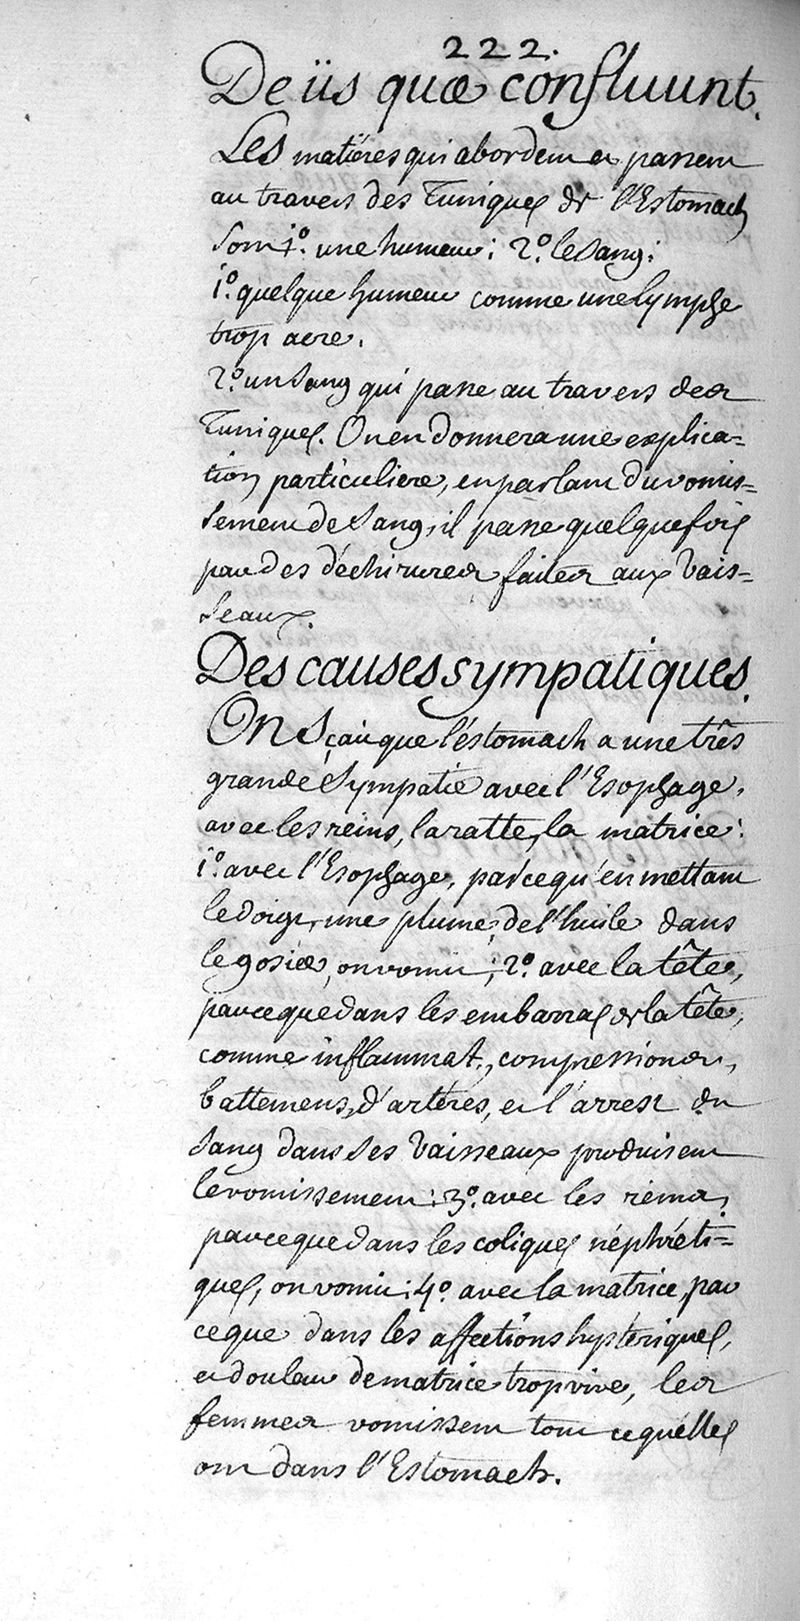 222.
De iis quæ confluunt.
Les matières qui abordent et passent
au travers des Tuniques de l'Estomach
sont 1º. une humeur; 2º. le sang;
1º. quelque humeur comme une lymphe
trop acre.
2º. un sang qui passe au travers des
Tuniques. On en donnera une explica=
tion particuliere, en parlant du vomis=
sement de sang, il passe quelquefois
par des déchirures faites aux vais=
seaux.
Des causes sympatiques.
On sçait que l'éstomach a une très
grande sympatie avec l'Esophage,
avec les reins, la ratte, la matrice:
1º. avec l'Esophage, parce qu'en mettant
le doigt, une plume, de l'huile dans
le gosier, on vomit; 2º. avec la tête,
parceque dans les embarras de la tête,
comme inflammat., compressions,
battemens, d'artères, et l'arrest du
sang dans ses vaisseaux produisent
le vomissement; 3º. avec les reins,
parceque dans les coliques néphréti=
ques, on vomit; 4º. avec la matrice, par
ceque dans les affections hystériques,
et douleur de matrice trop vive, les
femmes vomissent tout ce qu'elles
ont dans l'Estomach.